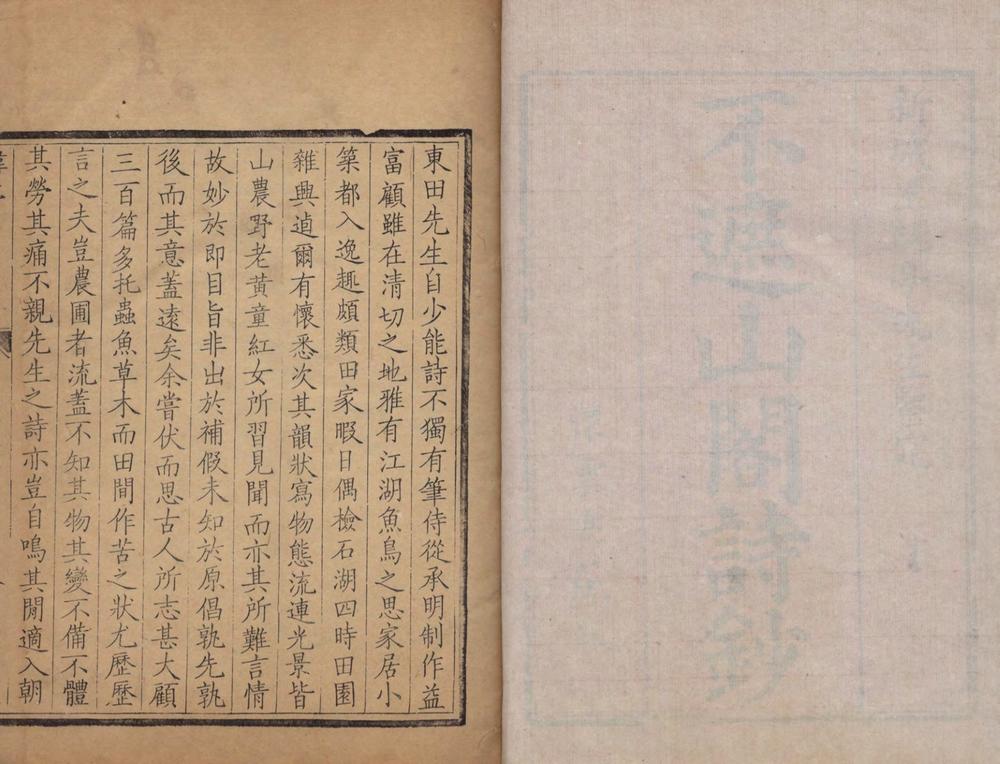 不遮山閣詩鈔
東田先生自少能詩不獨有筆侍從承明制作益
富顧雖在清切之地雅有江湖魚鳥之思家居小
築都入逸趣頗類田家暇日偶檢石湖四時田園
雜興逌爾有懷悉次其韻狀寫物態流連光景皆
山農野老黄童紅女所習見聞而亦其所難言情
故妙於即目旨非出於補假未知於原倡孰先孰
後而其意蓋遠矣余嘗伏而思古人所志甚大顧
三百篇多托蟲魚草木而田間作苦之狀尤歷歷
言之夫豈農圃者流蓋不知其物其變不備不體
其勞其痛不親先生之詩亦豈自鳴其閒適入朝